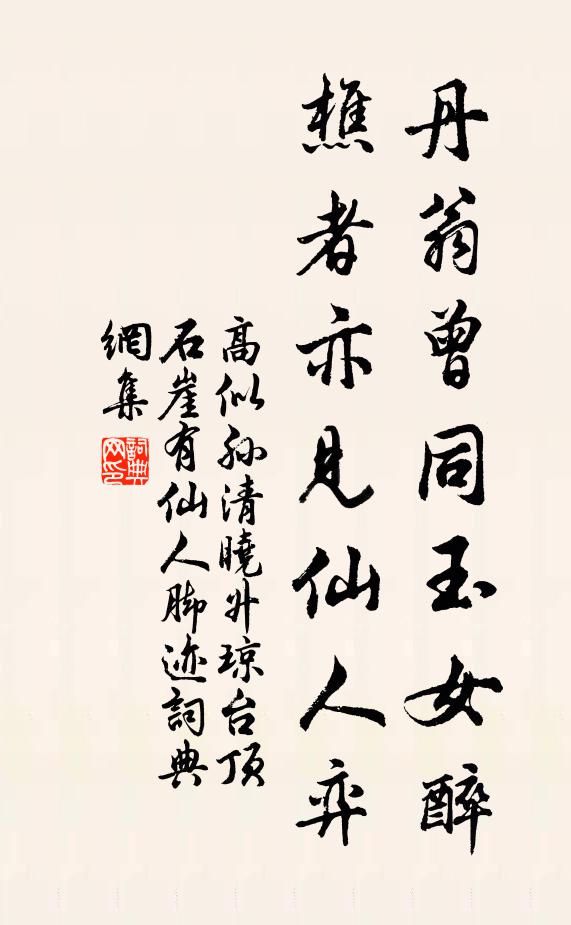 丹翁曾同玉女醉
樵者亦見仙人弈
高似孙清曉升琼台顶
石崖有仙人脚迹詞典
網集
詞典
网印